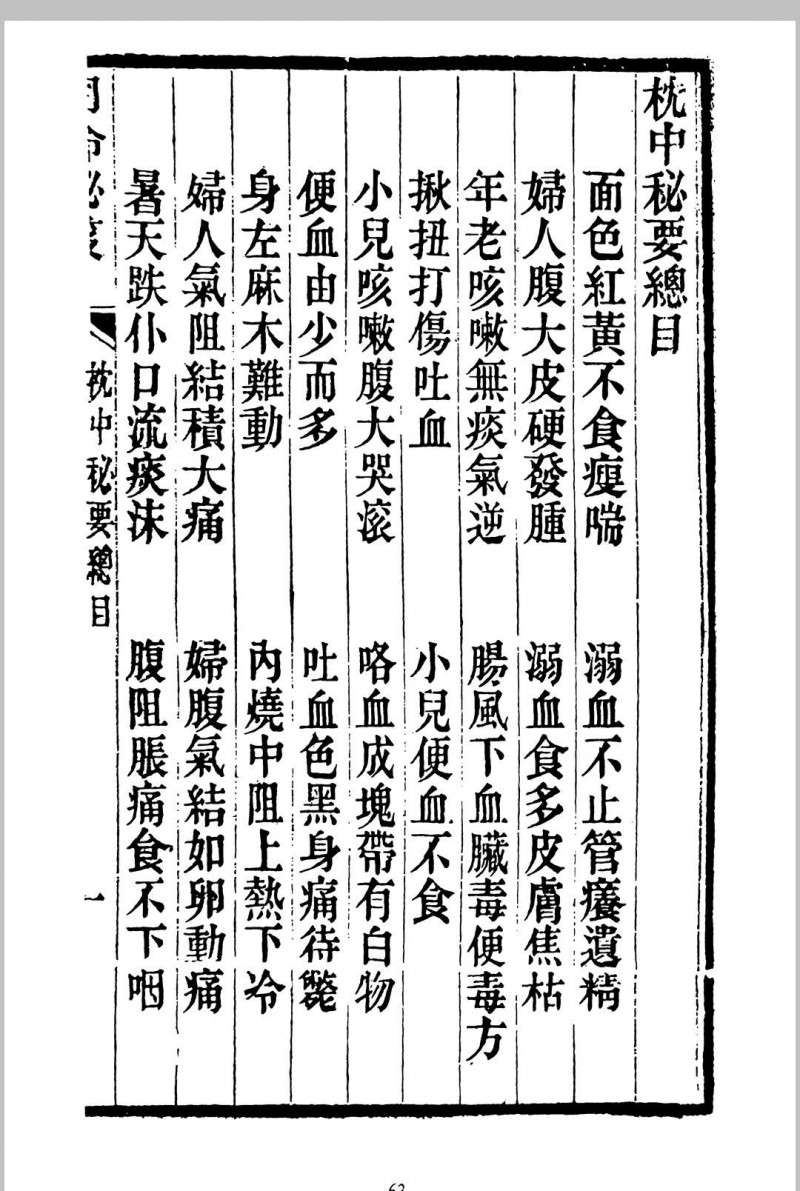 枕中秘要總目
面色紅黃不食瘦喘　溺血不止管癢遺精
婦人腹大皮硬發腫　溺血食多皮膚焦枯
年老咳嗽無痰氣逆　腸風下血臟毒便毒方
揪扭打傷吐血　小兒便血不食
小兒咳嗽腹大哭滾　咯血成塊帶有白物
便血由少而多　吐血色黑身痛待斃
身左麻木難動　內燒中阻上熱下冷
婦人氣阻結積大痛　婦腹氣結如卵動痛
暑天跌仆口流痰沫　腹阻脹痛食不下咽
枕中秘要總目　一
62